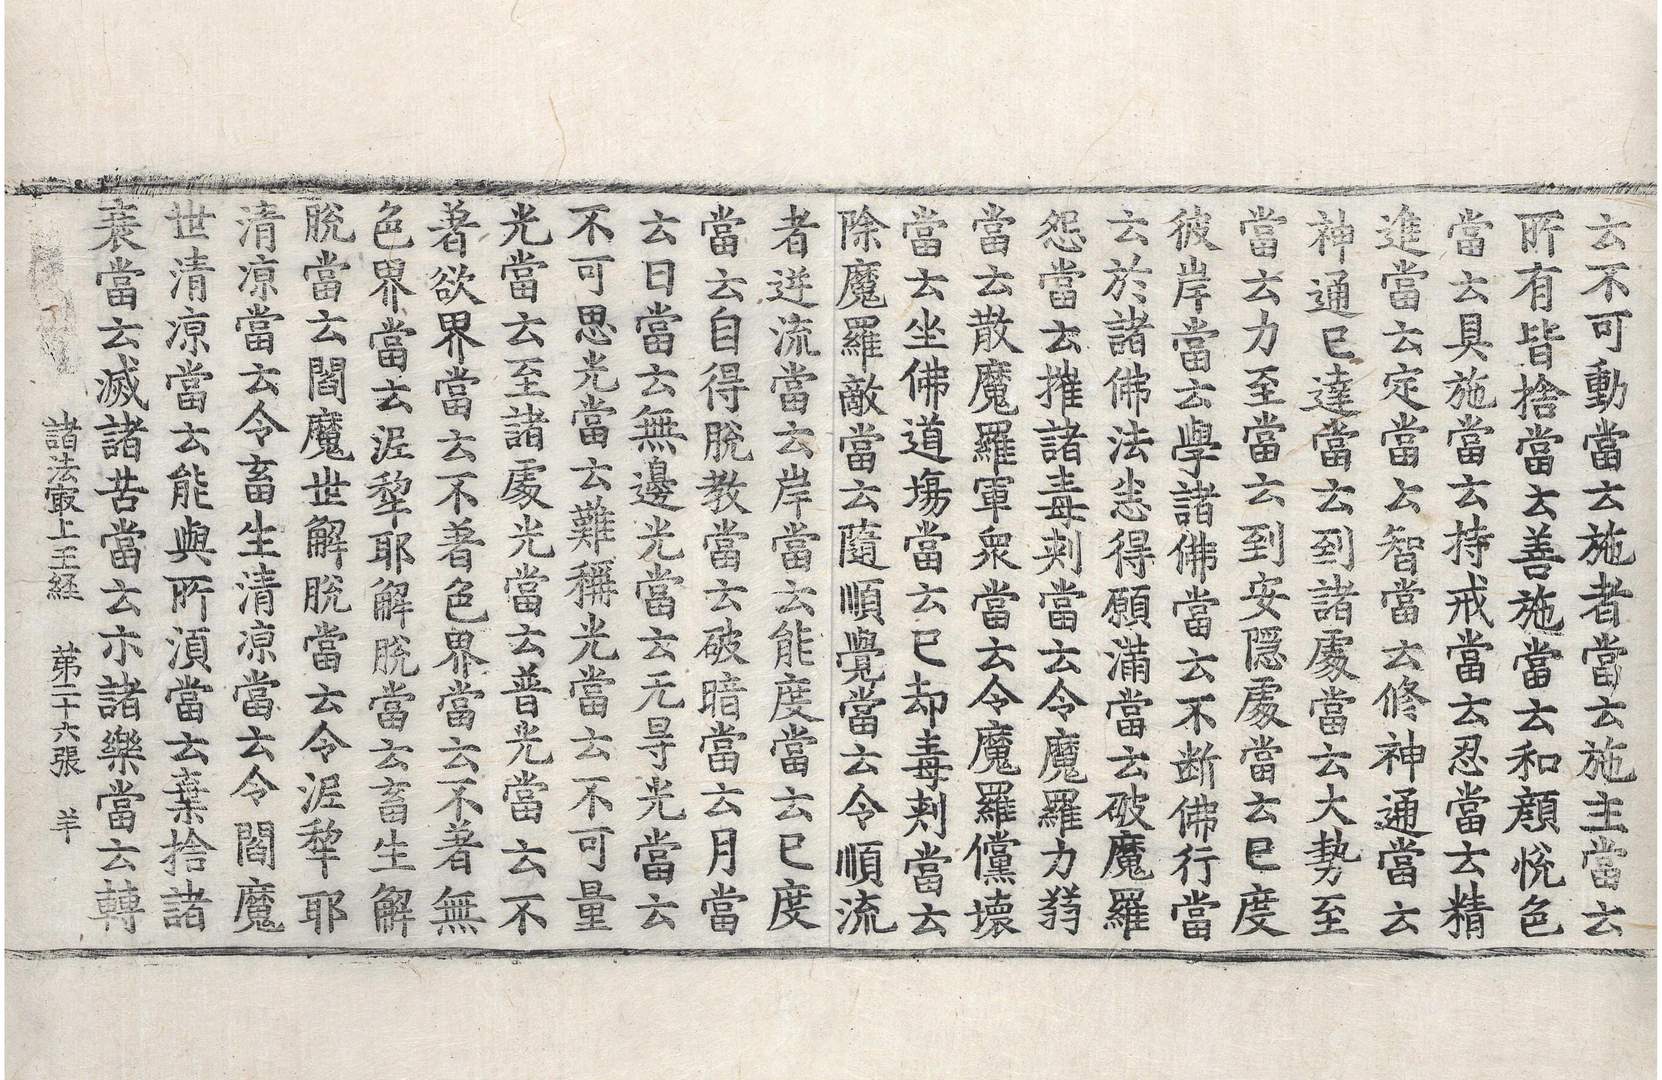 云不可動當云施者當云施主當云
所有皆捨當云善施當云和顔悅色
當云具施當云持戒當云忍當云精
進當云定當云智當云修神通當云
神通已達當云到諸處當云大勢至
當云力至當云到安隱處當云已度
彼岸當云學諸佛當云不断佛行當
云於諸佛法悉得願滿當云破魔羅
怨當云摧諸毒刾當云令魔羅力翁
當云散魔羅軍衆當云令魔羅儻壊
當云坐佛道場當云已却毒刾當云
除魔羅敵當云隨順覺當云令順流
者逆流當云岸當云能度當云已度
當云自得脫教當云破暗當云月當
云日當云無邊光當云无㝵光當云
不可思光當云難稱光當云不可量
光當云至諸處光當云普光當云不
著欲界當云不著色界當云不著無
色界當云泥犂耶解脫當云畜生解
脫當云閻魔世解脫當云令泥犂耶
清凉當云令畜生清凉當云令閻魔
世清凉當云能與所湏當云棄捨諸
當云滅諸苦當云示諸樂當云轉
諸法㝡上王経 苐二十六張 羊